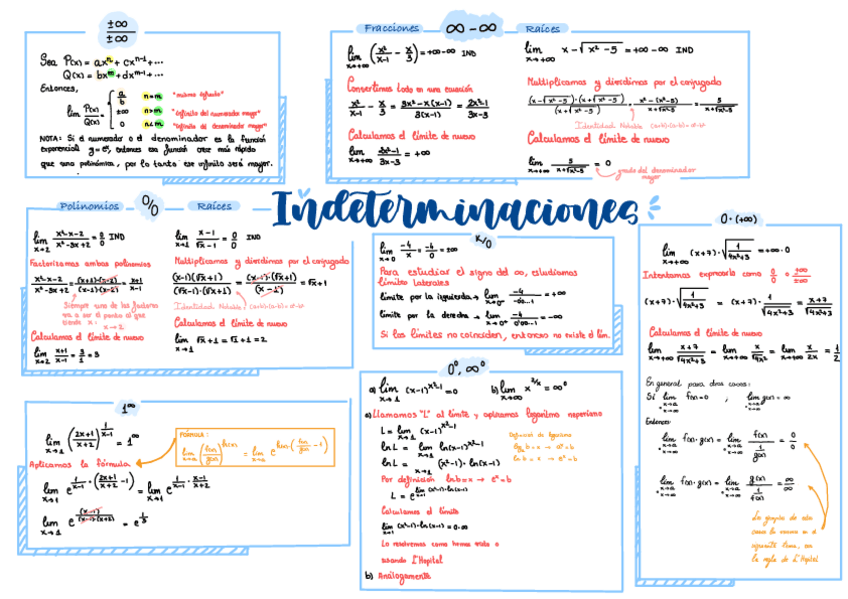 ±∞
±∞
Sea P(x) = axⁿ + cxⁿ⁻¹ + ...
Q(x) = bxᵐ + dxᵐ⁻¹ + ...
Entonces,
lim P(x)/Q(x) =
a/b n=m "mismo infinito"
±∞ n>m "infinito del numerador mayor"
0 n<m "infinito del denominador mayor"
NOTA: Si el numerador o el denominador es la función
exponencial y = eˣ, entonces esa función crece más rápido
que una polinómica, por lo tanto ese infinito será mayor.
∞ - ∞
Fracciones
lim x→+∞ (x²/x-1 - x/3) = +∞-∞ IND
Convertimos todo en una ecuación
x²/x-1 - x/3 = 3x²-x(x-1)/3(x-1) = 2x²-1/3x-3
Calculamos el límite de nuevo
lim x→+∞ 2x²-1/3x-3 = +∞
Raíces
lim x→+∞ x - √x²-5 = +∞-∞ IND
Multiplicamos y dividimos por el conjugado
(x-√x²-5)·(x+√x²-5)/(x+√x²-5) = x²-(x²-5)/x+√x²-5 = 5/x+√x²-5
Identidad Notable (a+b)·(a-b) = a²-b²
Calculamos el límite de nuevo
lim x→+∞ 5/x+√x²-5 = 0
grado del denominador
mayor
Indeterminaciones
0/0
Polinomios
lim x→2 x²-x-2/x²-3x+2 = 0/0 IND
Factorizamos ambas polinomios
x²-x-2/x²-3x+2 = (x+1)·(x-2)/(x-1)·(x-2) = x+1/x-1
Siempre uno de los factores
va a ser el punto al que
tiende x:
x→2
Calculamos el límite de nuevo
lim x→2 x+1/x-1 = 3/1 = 3
Raíces
lim x→1 x-1/√x-1 = 0/0 IND
Multiplicamos y dividimos por el conjugado
(x-1)(√x+1)/(√x-1)·(√x+1) = (x-1)·(√x+1)/(x-1) = √x+1
Identidad Notable = (a+b)·(a-b) = a²-b²
Calculamos el límite de nuevo
lim x→1 √x+1 = √1+1 = 2
k/0
lim x→0 -4/x = -4/0 = ±∞
Para estudiar el signo del ∞, estudiamos
límites laterales
límite por la izquierda → lim x→0⁻ -4/-0'00...1 = +∞
límite por la derecha → lim x→0⁺ -4/0'00...1 = -∞
Si los límites no coinciden, entonces no existe el lím.
0·(+∞)
lim x→+∞ (x+7)·√1/4x²+3 = +∞·0
Intentamos expresarla como 0/0 o +∞/±∞
(x+7)·√1/4x²+3 = (x+7)·1/√4x²+3 = x+7/√4x²+3
Calculamos el límite de nuevo
lim x→+∞ x+7/√4x²+3 = lim x→+∞ x/√4x² = lim x→∞ x/2x = 1/2
En general para otros casos:
Si lim f(x)=0 , lim g(x)=∞
x→a x→∞ x→a x→∞
Entonces:
lim f(x)·g(x) = lim f(x)/1/g(x) = 0/0
x→a x→∞
lim f(x)·g(x) = lim g(x)/1/f(x) = ∞/∞
x→a x→∞
siguiente tema, con
la regla de L'Hopital
1^∞
lim x→1 (2x+1/x+2)^1/x-1 = 1^∞
FÓRMULA:
Aplicamos la fórmula
lim x→1 e^1/x-1·(2x+1/x+2 - 1) = lim x→1 e^1/x-1·x-1/x+2
lim x→1 e^(x-1)/(x-1)·(x+2) = e^1/3
0⁰, ∞⁰
a) lim x→1 (x-1)^x²-1 = 0 b) lim x→∞ x^2/x = ∞⁰
a) Llamamos "L" al límite y aplicamos logaritmo neperiano
L = lim x→1 (x-1)^x²-1
lnL = lim x→1 ln(x-1)^x²-1
lnL = lim x→1 (x²-1)·ln(x-1)
Definición de logaritmo
ln b = x → eˣ = b
Por definición lnb=x → eˣ=b
L = e^lim x→1 (x²-1)·ln(x-1)
Calculamos el límite
lim x→1 (x²-1)·ln(x-1) = 0·∞
Lo resolvemos como hemos visto o
usando L'Hopital
b) Análogamente